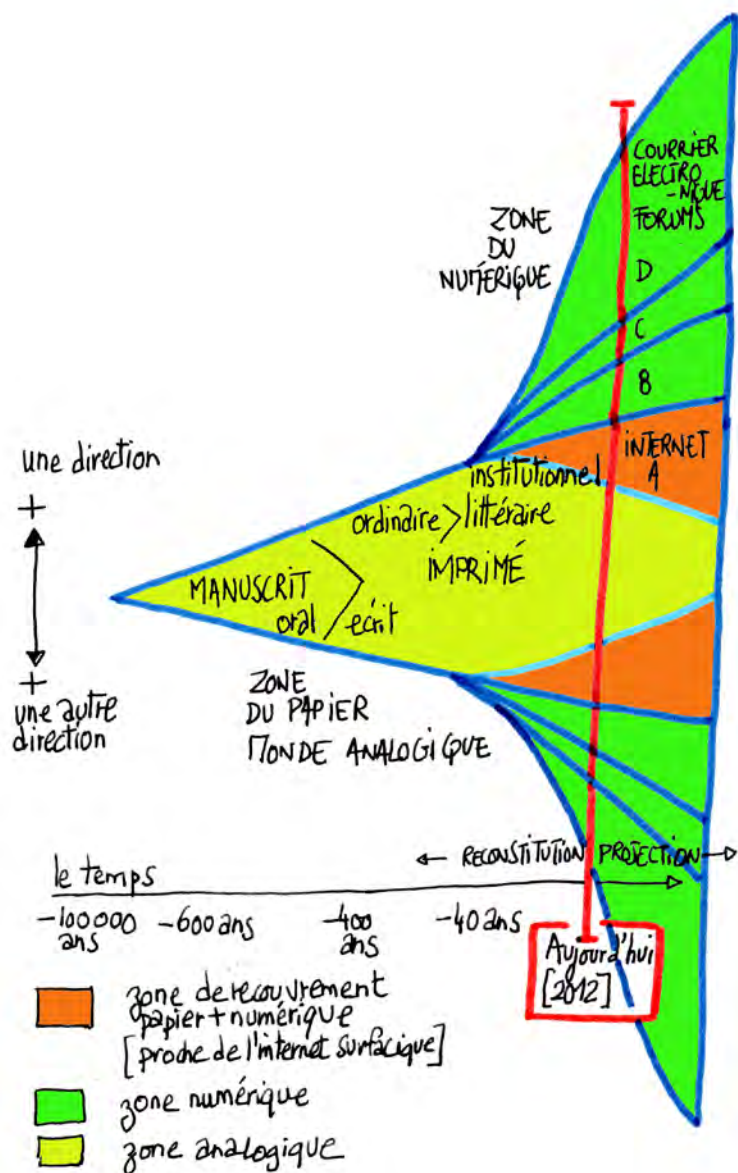 COURRIER
ELECTRO
-NIQUE
FORUMS
ZONE
DU
NUMÉRIQUE
D
C
B
INTERNET
A
une direction
+
institutionnel
ordinaire > littéraire
IMPRIMÉ
MANUSCRIT
oral > écrit
+
une autre
direction
ZONE
DU PAPIER
MONDE ANALOGIQUE
← RECONSTITUTION PROJECTION →
le temps
-100 000
ans
-600 ans
-400
ans
-40 ans
Aujourd'hui
[2012]
zone de recouvrement
papier + numérique
[proche de l'internet surfacique]
zone numérique
zone analogique